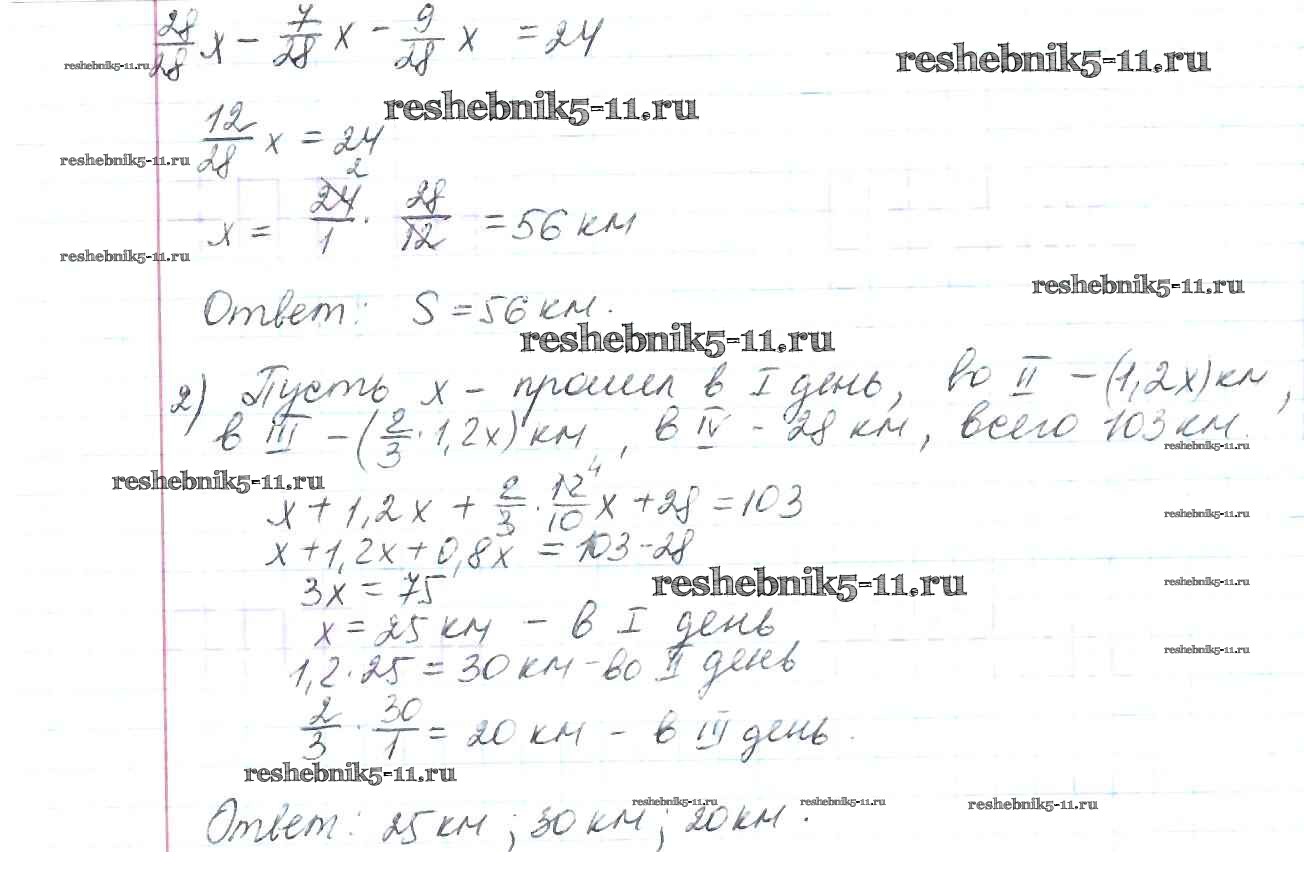 28/28 x − 7/28 x − 9/28 x = 24
reshebnik5-11.ru
reshebnik5-11.ru
reshebnik5-11.ru
12/28 x = 24
reshebnik5-11.ru
2
x = 24/1 · 28/12 = 56 км
reshebnik5-11.ru
reshebnik5-11.ru
Ответ: S = 56 км.
reshebnik5-11.ru
2) Пусть x – прошел в I день, во II – (1,2x) км,
в III – (2/3 · 1,2x) км, в IV – 28 км, всего 103 км.
reshebnik5-11.ru
reshebnik5-11.ru
4
x + 1,2x + 2/3 · 12/10 x + 28 = 103
reshebnik5-11.ru
x + 1,2x + 0,8x = 103 − 28
3x = 75
reshebnik5-11.ru
reshebnik5-11.ru
x = 25 км – в I день
1,2 · 25 = 30 км – во II день
reshebnik5-11.ru
2/3 · 30/1 = 20 км – в III день.
reshebnik5-11.ru
reshebnik5-11.ru
reshebnik5-11.ru
reshebnik5-11.ru
Ответ: 25 км; 30 км; 20 км.